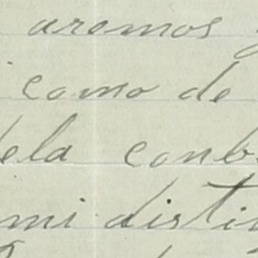 aremos
como de
dela conb
mi distin